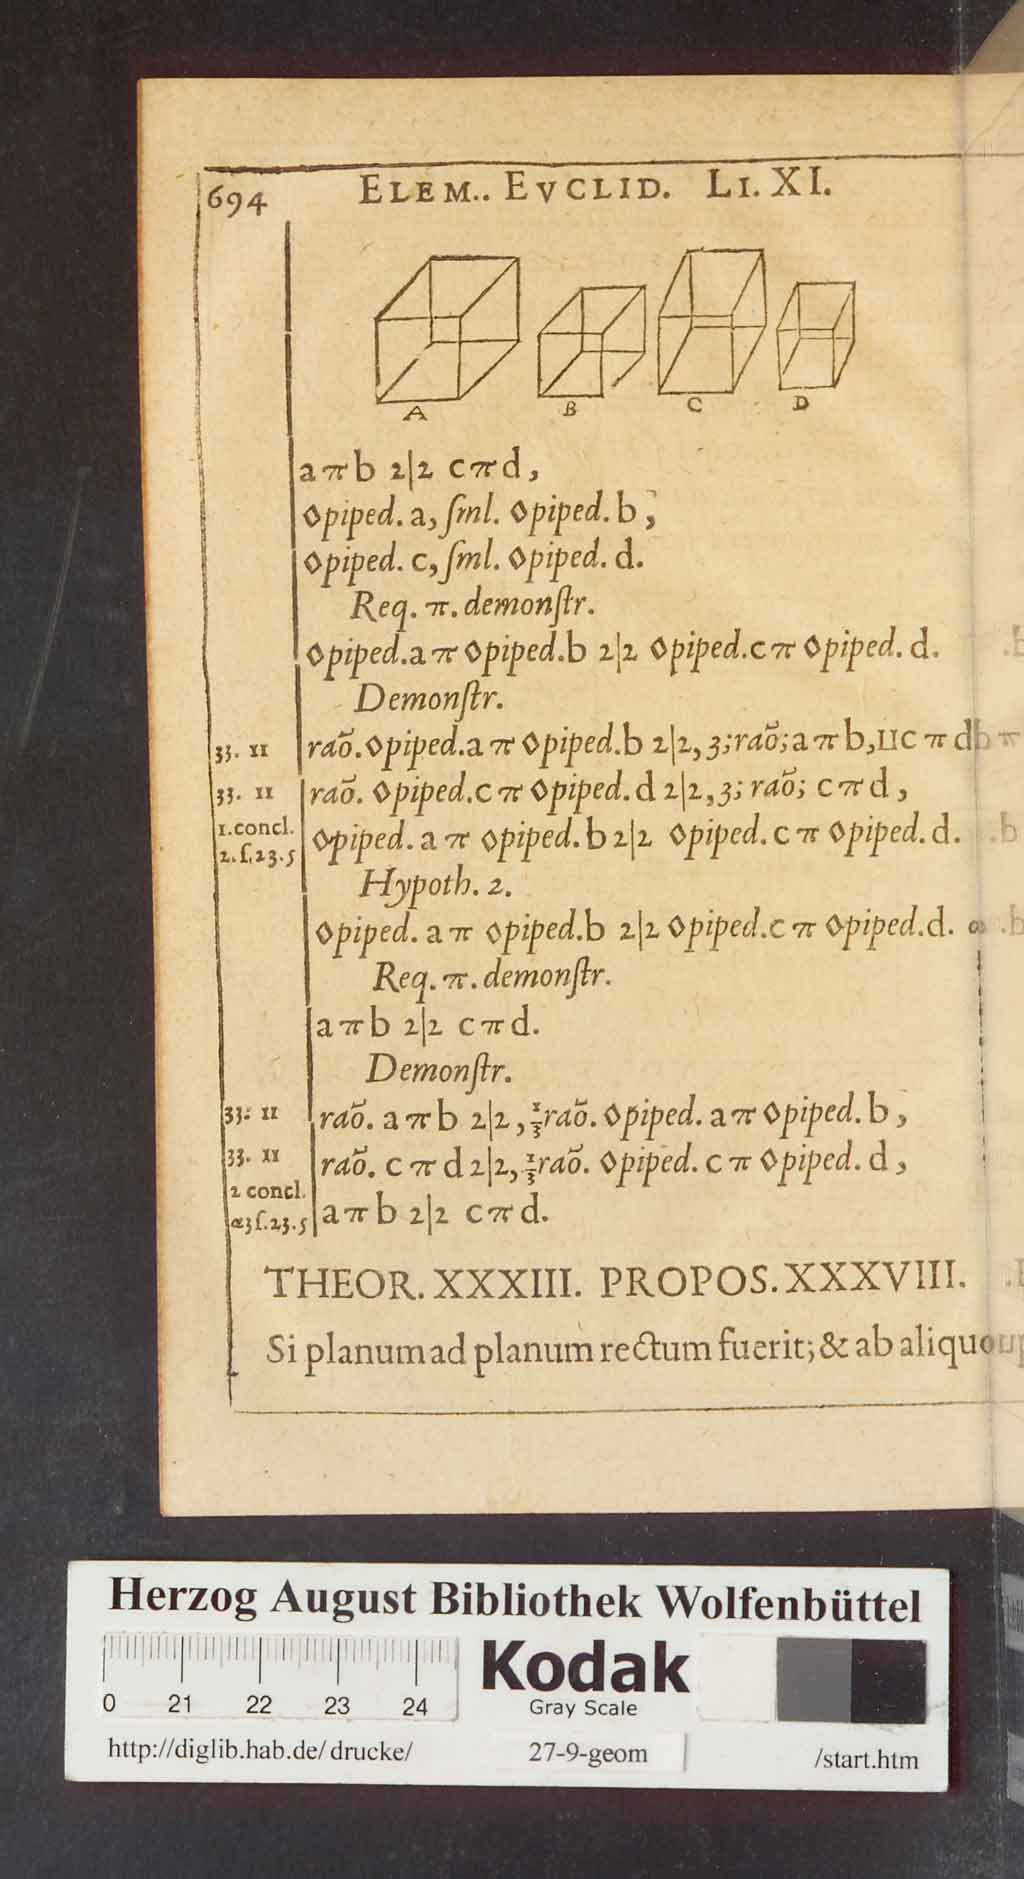 694 ELEM.. EVCLID. LI. XI.
A B C D
a π b 2|2 c π d,
◊piped. a, ſml. ◊piped. b,
◊piped. c, ſml. ◊piped. d.
Req. π. demonſtr.
◊piped. a π ◊piped. b 2|2 ◊piped. c π ◊piped. d.
Demonſtr.
33. 11 raõ. ◊piped. a π ◊piped. b 2|2, 3; raõ; a π b, IIc π d
33. 11 raõ. ◊piped. c π ◊piped. d 2|2, 3; raõ; c π d,
1. concl.
2. ſ. 23. 5 ◊piped. a π ◊piped. b 2|2 ◊piped. c π ◊piped. d.
Hypoth. 2.
◊piped. a π ◊piped. b 2|2 ◊piped. c π ◊piped. d.
Req. π. demonſtr.
a π b 2|2 c π d.
Demonſtr.
33. 11 raõ. a π b 2|2, ⅓ raõ. ◊piped. a π ◊piped. b,
33. 11 raõ. c π d 2|2, ⅓ raõ. ◊piped. c π ◊piped. d,
2 concl.
æ3 ſ. 23. 5 a π b 2|2 c π d.
THEOR. XXXIII. PROPOS. XXXVIII.
Si planum ad planum rectum fuerit; & ab aliquo
Herzog August Bibliothek Wolfenbüttel
0 21 22 23 24
Kodak
Gray Scale
http://diglib.hab.de/drucke/ 27-9-geom /start.htm